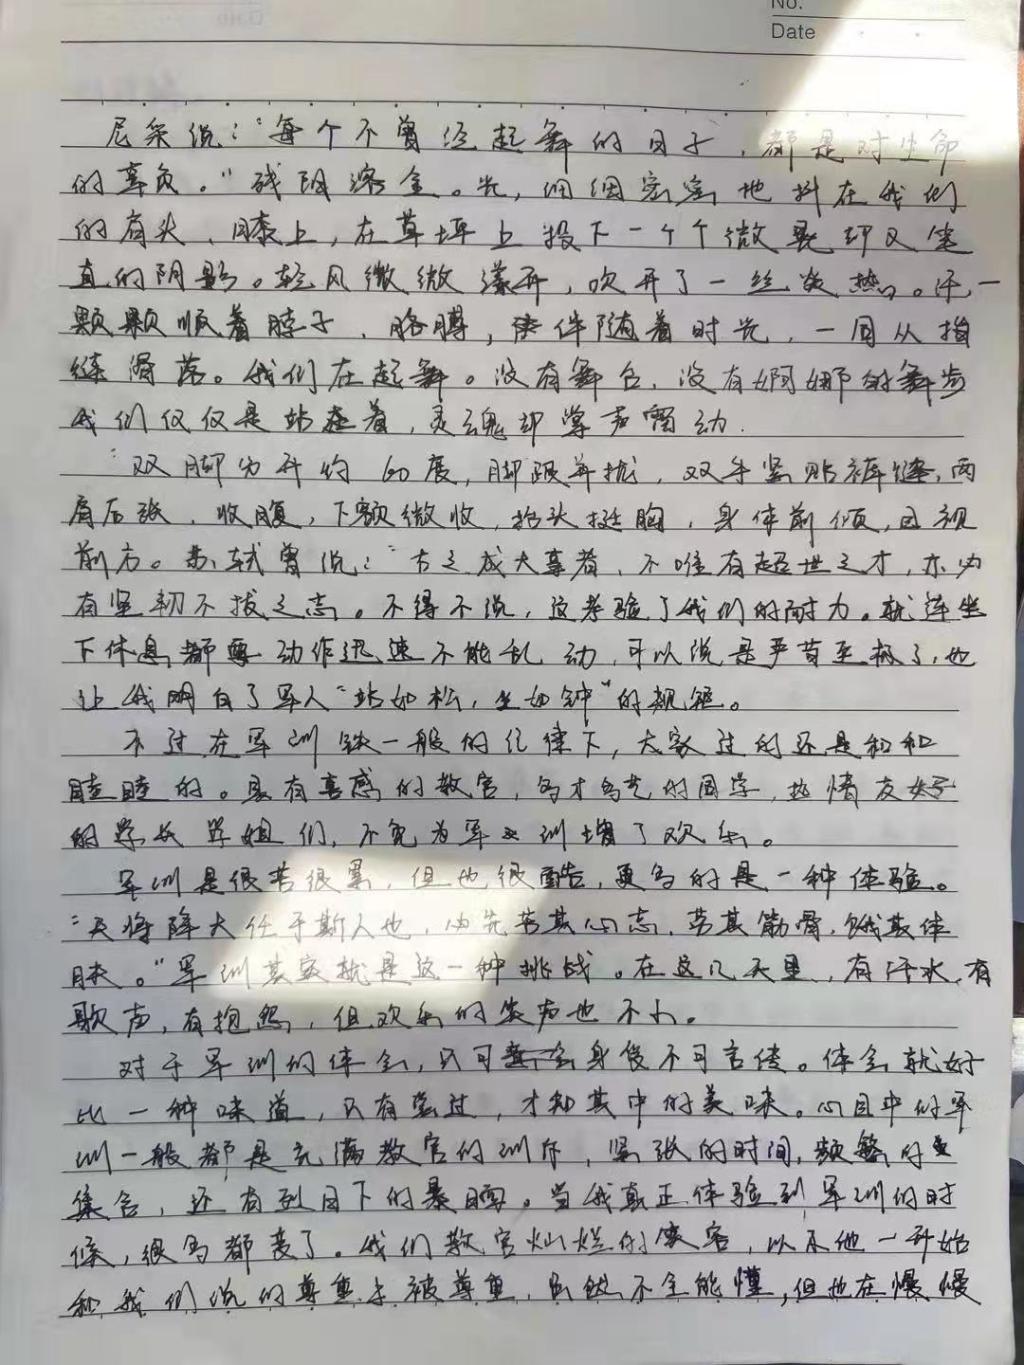 No.
Date
尼采说：“每个不曾经起舞的日子，都是对生命
的辜负。”残阳溶金。光，细细密密地抖在我们
的肩头、膝上，在草坪上投下一个个微晃却又笔
直的阴影。轻风微微漾开，吹开了一丝炎热。汗，一
颗颗顺着脖子、胳膊，伴随着时光，一同从指
缝滑落。我们在起舞。没有舞台，没有婀娜的舞步
我们仅仅是站着，灵魂却掌声雷动.
双脚分开约60度，脚跟并拢，双手紧贴裤缝，两
肩后张，收腹，下颚微收，抬头挺胸，身体前倾，目视
前方。苏轼曾说：“古之成大事者，不唯有超世之才，亦必
有坚韧不拔之志。不得不说，这考验了我们的耐力。就连坐
下休息都要动作迅速不能乱动，可以说是严苛至极了，也
让我明白了军人“站如松，坐如钟”的规矩。
不过在军训铁一般的纪律下，大家过的还是和和
睦睦的。具有喜感的教官，多才多艺的同学，热情友好
的学长学姐们，不免为军训增了欢乐。
军训是很苦很累，但也很酷，更多的是一种体验。
“天将降大任于斯人也，必先苦其心志，劳其筋骨，饿其体
肤。”军训其实就是这一种挑战。在这几天里，有汗水，有
歌声，有抱怨，但欢乐的笑声也不小。
对于军训的体会，只可意会身受不可言传。体会就好
比一种味道，只有尝过，才知其中的美味。心目中的军
训一般都是充满教官的训斥，紧张的时间，频繁的
集合，还有烈日下的暴晒。当我真正体验到军训的时
候，很多都变了。我们教官灿烂的笑容，以及他一开始
和我们说的尊重与被尊重，虽然不全能懂，但也在慢慢